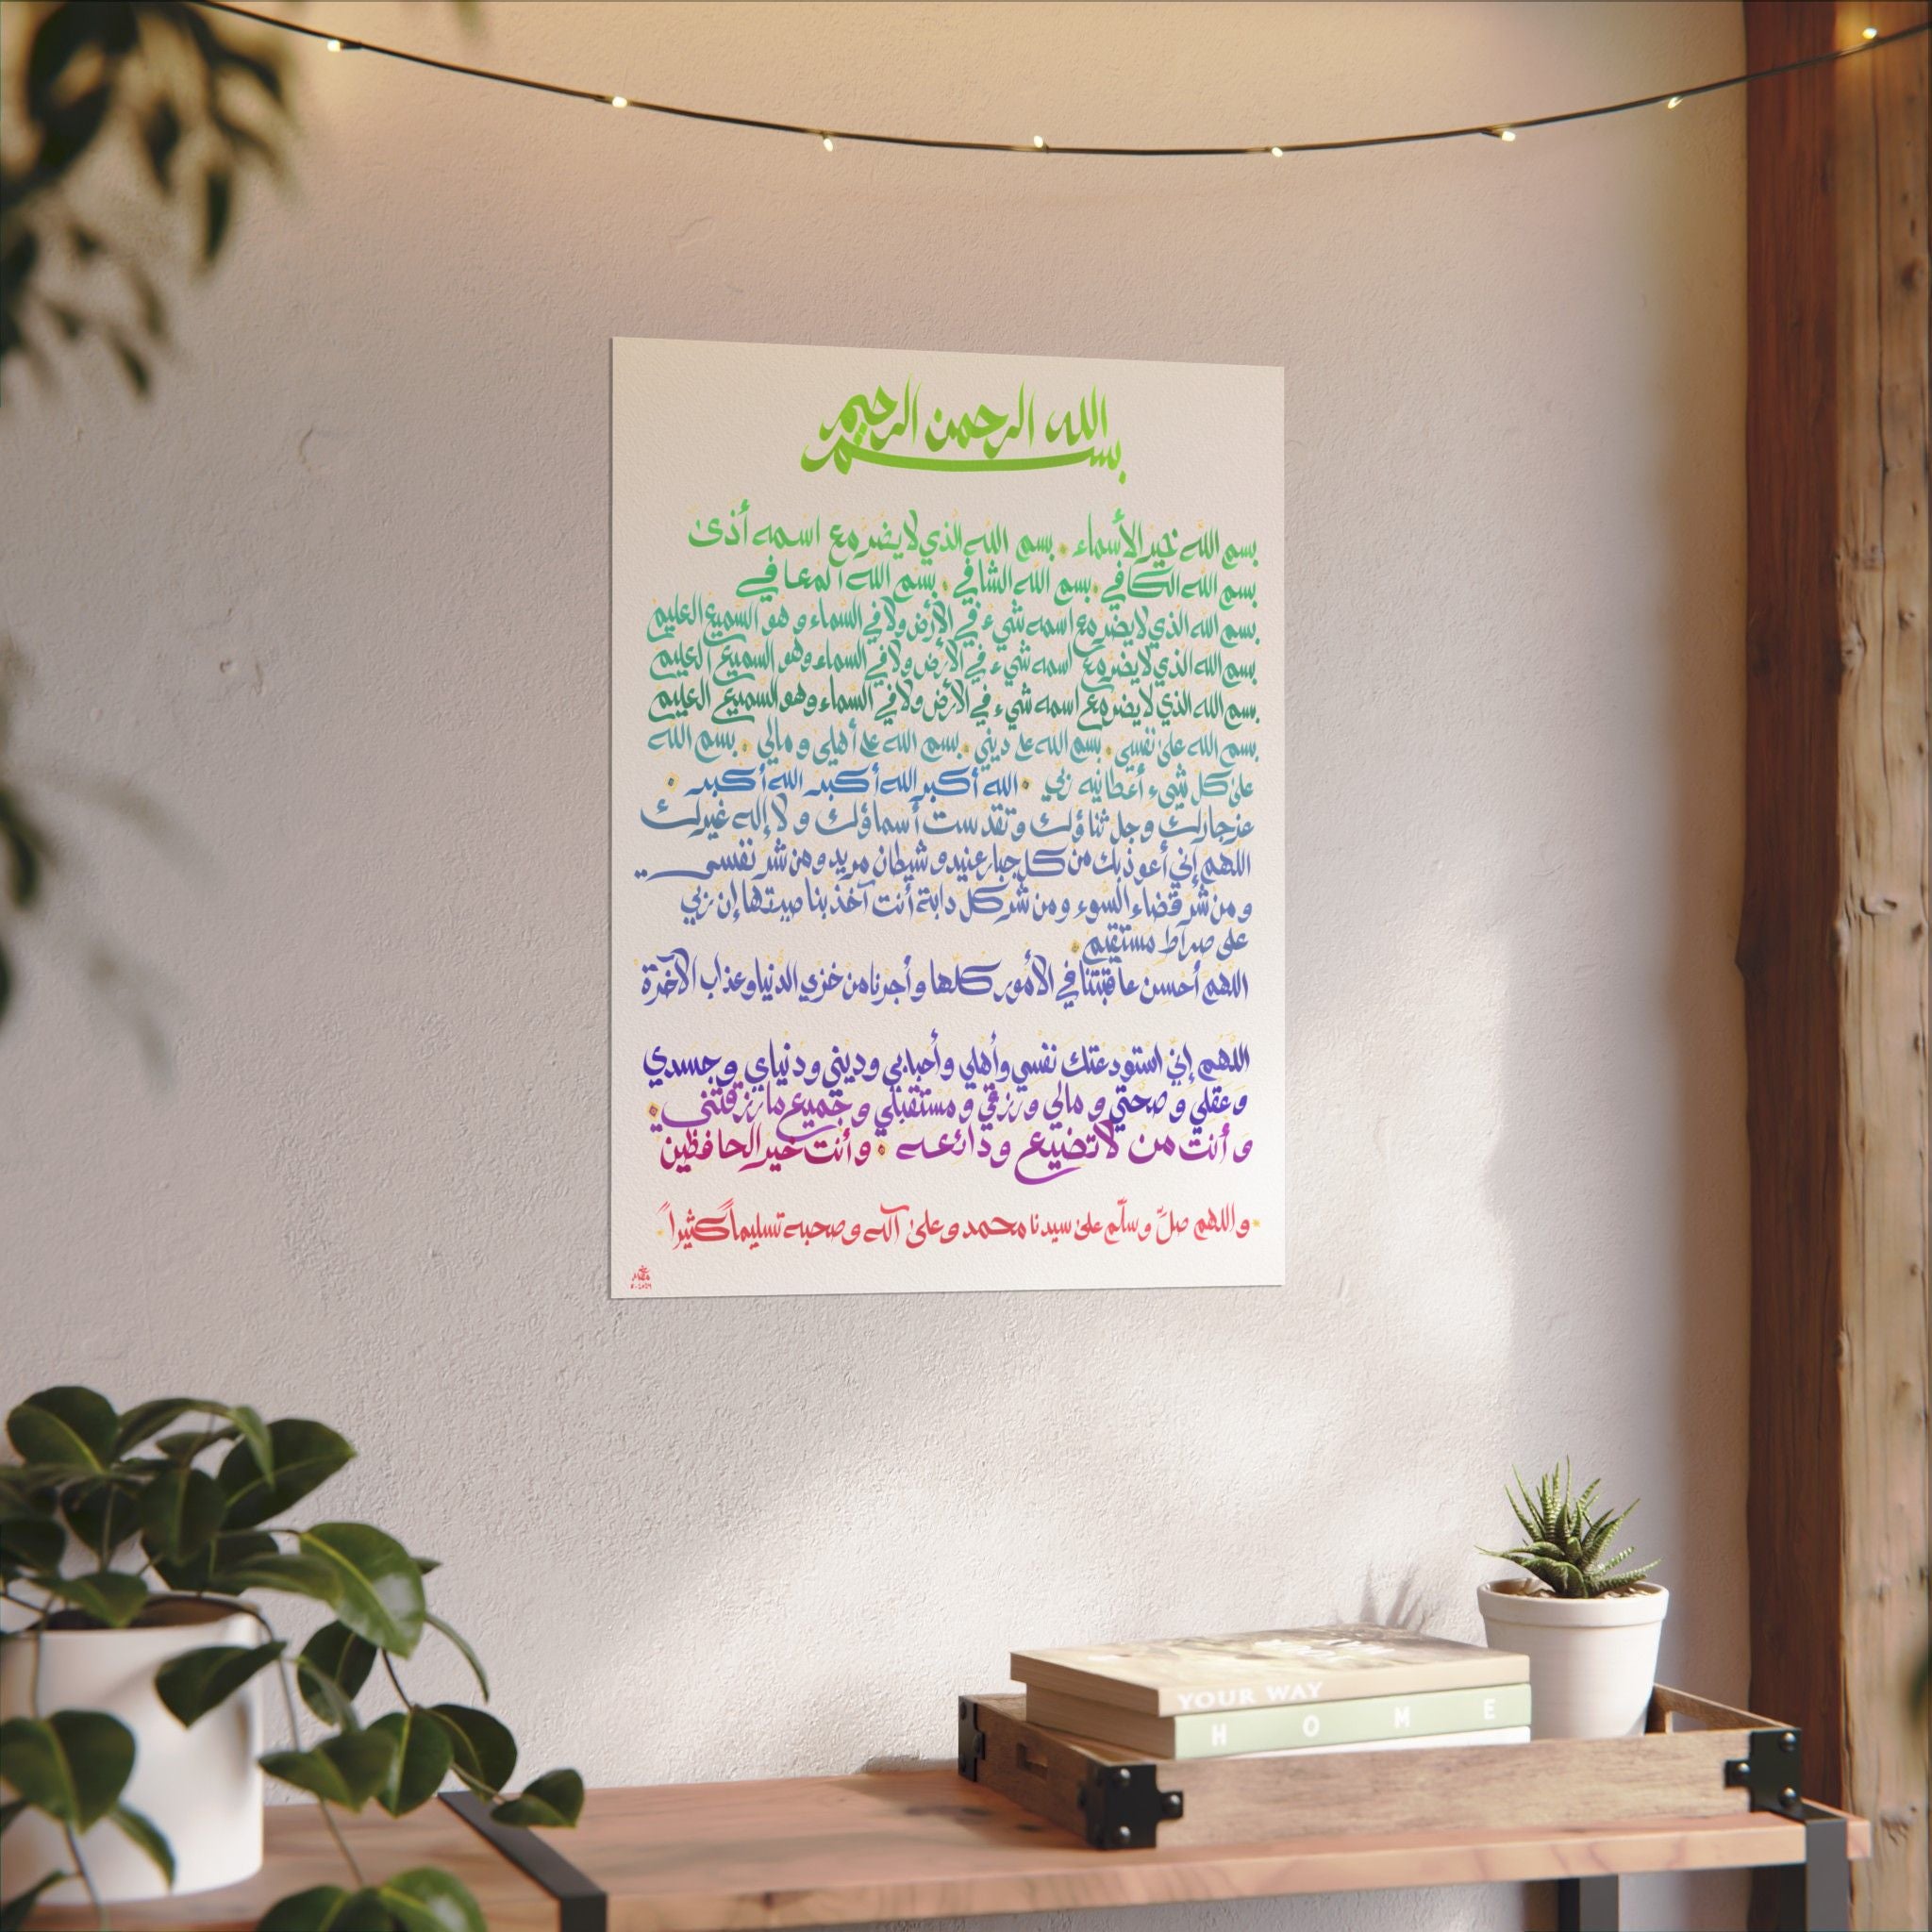 بسم الله الرحمن الرحيم
بسم الله خير الأسماء • بسم الله الذي لا يضر مع اسمه أذى
بسم الله الكافي • بسم الله الشافي • بسم الله المعافي
بسم الله الذي لا يضر مع اسمه شيء في الأرض ولا في السماء وهو السميع العليم
بسم الله الذي لا يضر مع اسمه شيء في الأرض ولا في السماء وهو السميع العليم
بسم الله الذي لا يضر مع اسمه شيء في الأرض ولا في السماء وهو السميع العليم
بسم الله على نفسي • بسم الله على ديني • بسم الله على أهلي و مالي • بسم الله
على كل شيء أعطانيه ربي • الله أكبر الله أكبر الله أكبر •
عز جارك وجل ثناؤك وتقدست أسماؤك ولا إله غيرك
اللهم إني أعوذ بك من كل جبار عنيد و شيطان مريد و من شر نفسي
و من شر قضاء السوء و من شر كل دابة أنت آخذ بناصيتها إن ربي
على صراط مستقيم •
اللهم أحسن عاقبتنا في الأمور كلها و أجرنا من خزي الدنيا وعذاب الآخرة
اللهم إني استودعتك نفسي وأهلي وأحبابي وديني ودنياي وجسدي
و عقلي و صحتي و مالي و رزقي و مستقبلي و جميع ما رزقتني •
و أنت من لا تضيع ودائعه • وأنت خير الحافظين
• و اللهم صلّ و سلّم على سيدنا محمد وعلى آله و صحبه تسليماً كثيراً
YOUR WAY
HOME